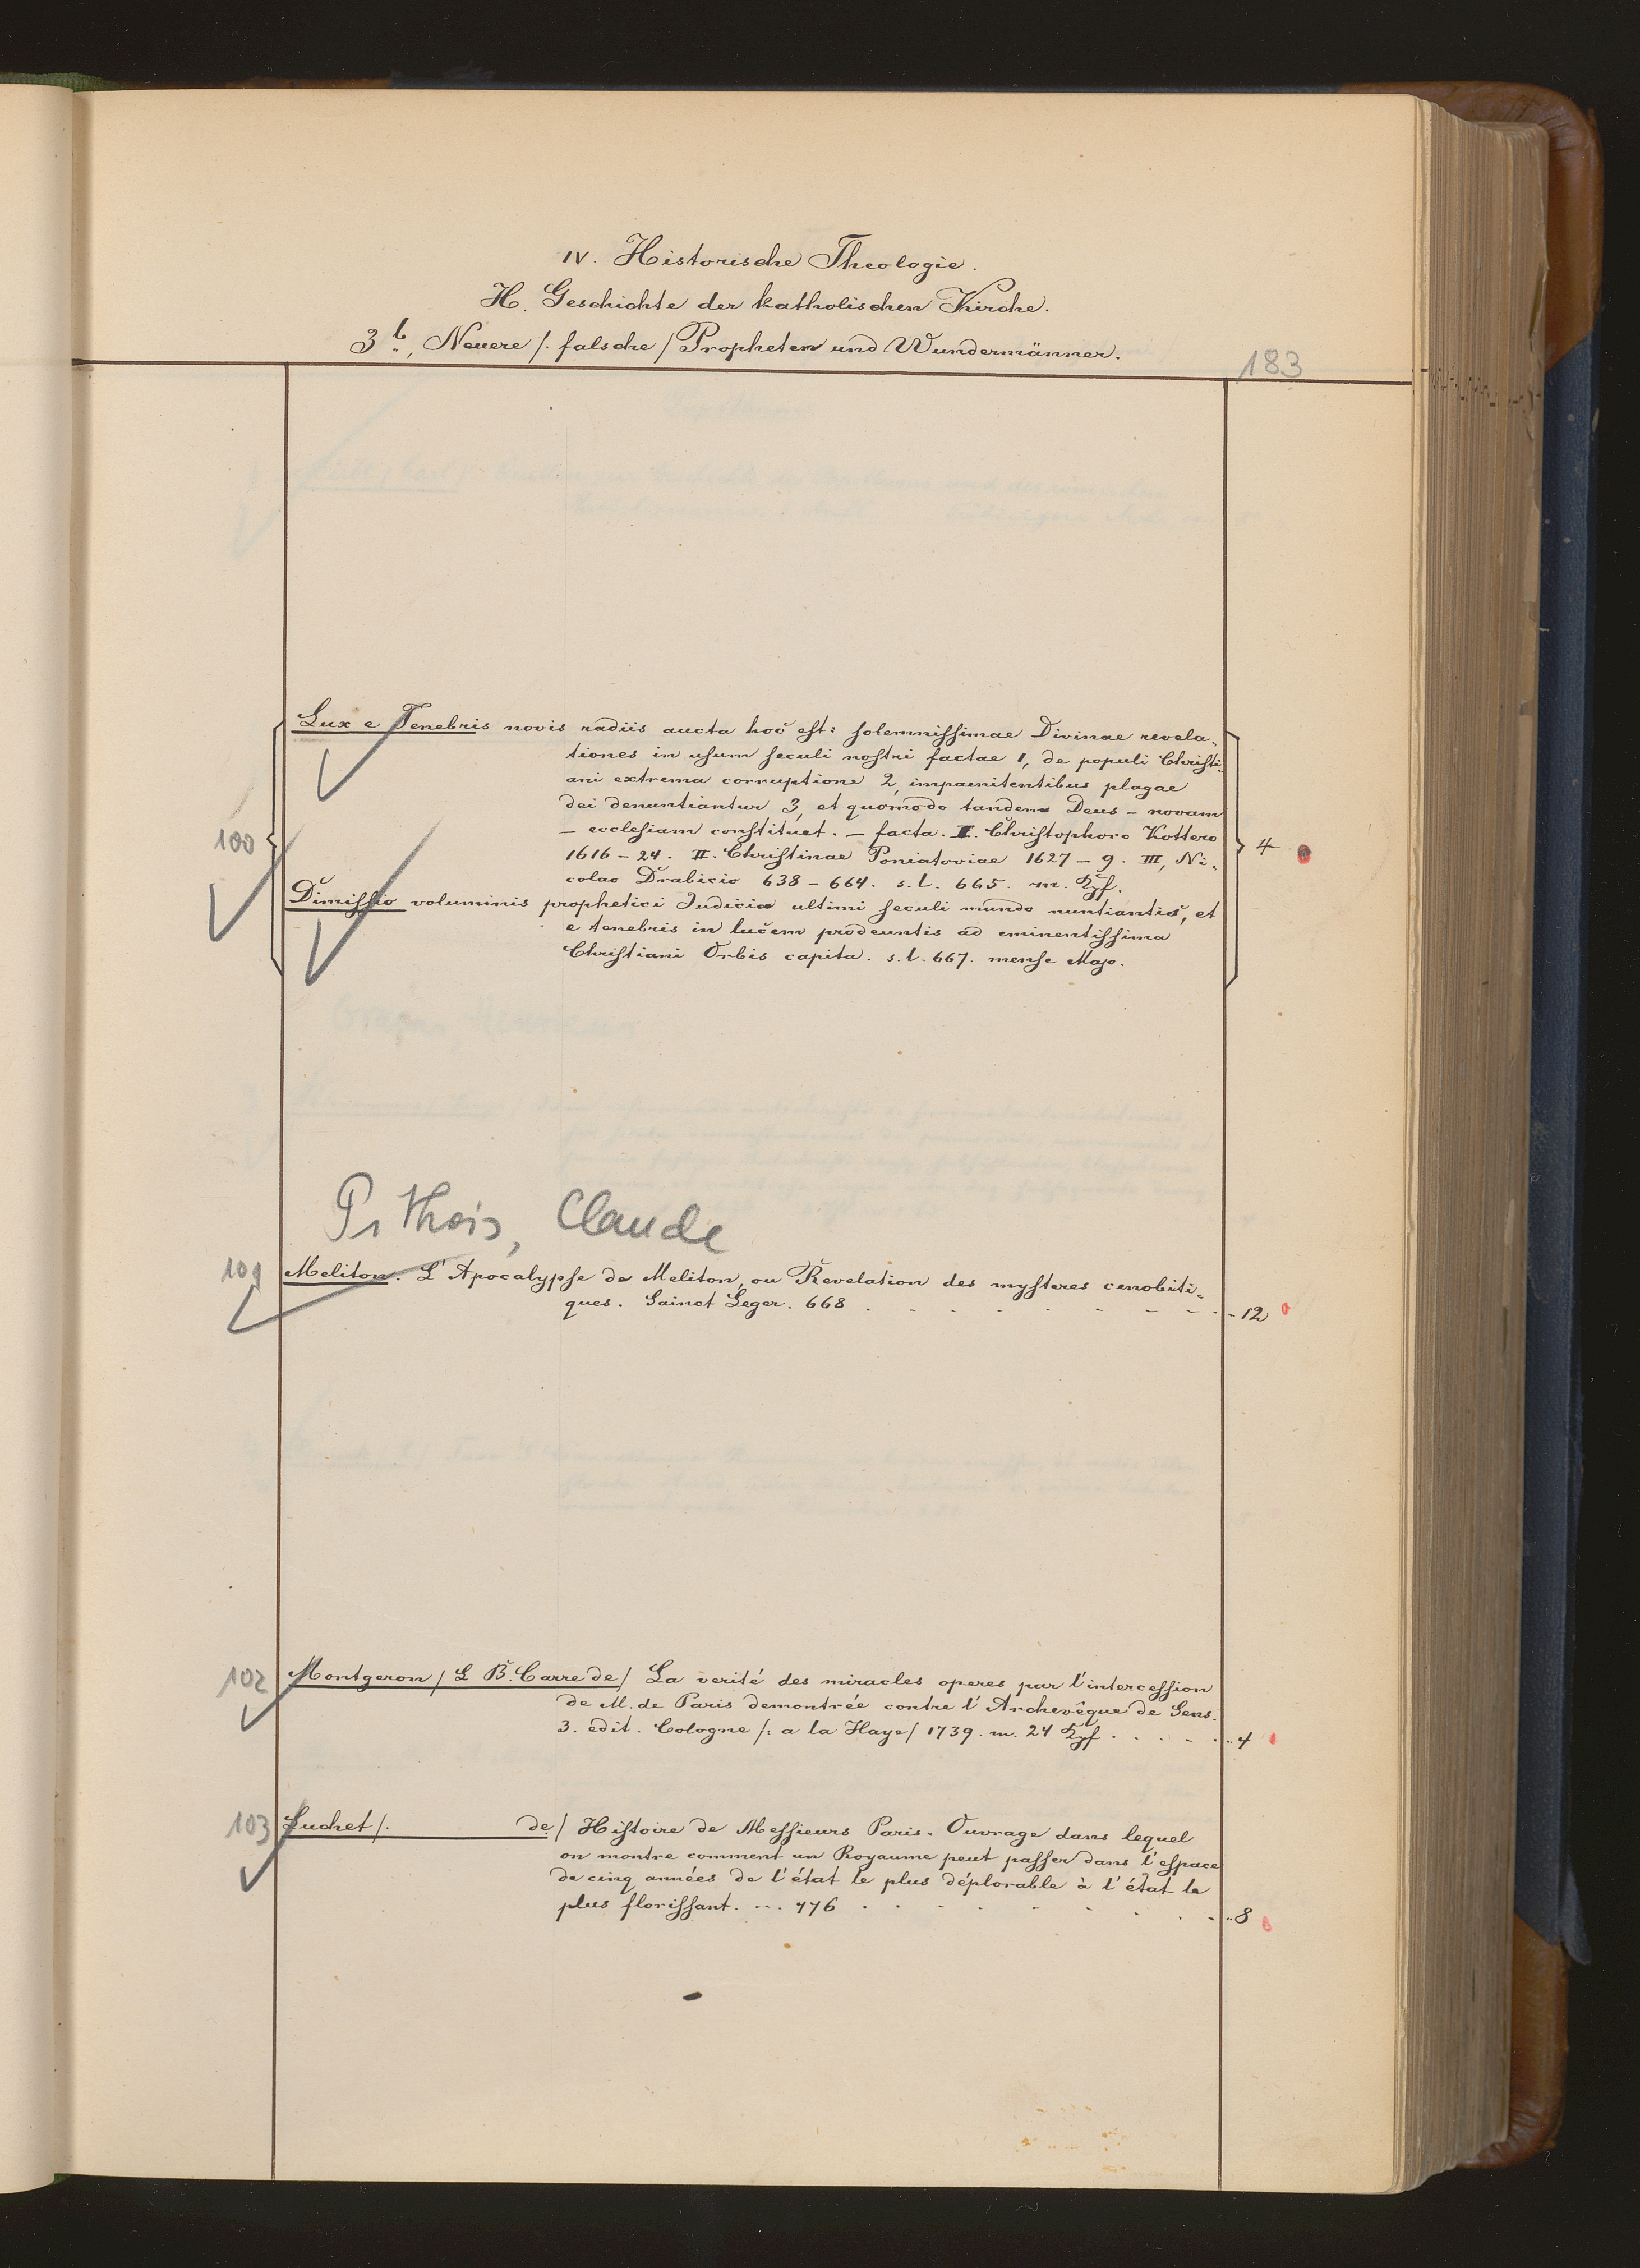 IV. Historische Theologie.
H. Geschichte der katholischen Kirche.
3b, Neuere /. falsche / Propheten und Wundermänner.
183
Lux e Tenebris novis radiis aucta hoc est: solemnissimae Divinae revela-
tiones in usum seculi nostri factae 1, de populi Christi-
ani extrema corruptione 2, impaenitentibus plagae
dei denuntiantur 3, et quomodo tandem Deus – novam
– ecclesiam constituet. – facta. I. Christophoro Kottero
1616 – 24. II. Christinae Poniatoviae 1627 – 9. III, Ni-
colao Drabicio 638 – 664. s. l. 665. m. Kpf.
100
4
Dimissio voluminis prophetici Judicia ultimi seculi mundo nuntiantis, et
e tenebris in lucem prodeuntis ad eminentissima
Christiani Orbis capita. s. l. 667. mense Majo.
Pithois, Claude
101 Meliton. L'Apocalypse de Meliton, ou Revelation des mysteres cenobiti-
ques. Sainct Leger. 668 . . . . . . . . 12
102 Montgeron / L B. Carre de / La verité des miracles operes par l'intercession
de M. de Paris demontrée contre l'Archevêque de Sens.
3. edit. Cologne /: a la Haye / 1739. m. 24 Kpf . . . . . 4
103 Luchet /. de / Histoire de Messieurs Paris. Ouvrage dans lequel
on montre comment un Royaume peut passer dans l'espace
de cinq années de l'état le plus déplorable à l'état le
plus florissant. ... 776 . . . . . . . . 8